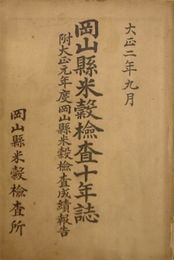 大正二年九月
岡山縣米穀檢查十年誌
附大正元年度岡山縣米穀檢查成績報告
岡山縣米穀檢查所